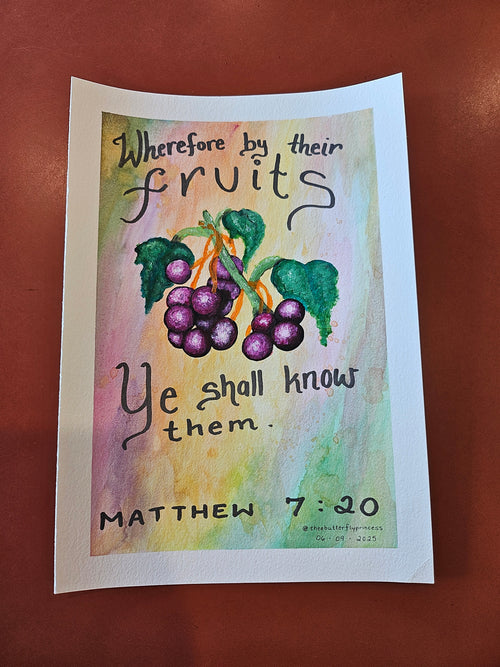 Wherefore by their
fruits
Ye shall know
them.
MATTHEW 7:20
@theebutterflyprincess
06 - 09 - 2025